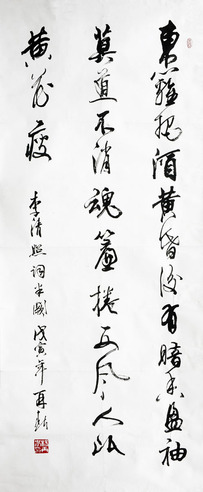 東籬把酒黄昏後有暗香盈袖
莫道不消魂簾捲西風人似
黄花瘦
李清照詞半闋戊寅年